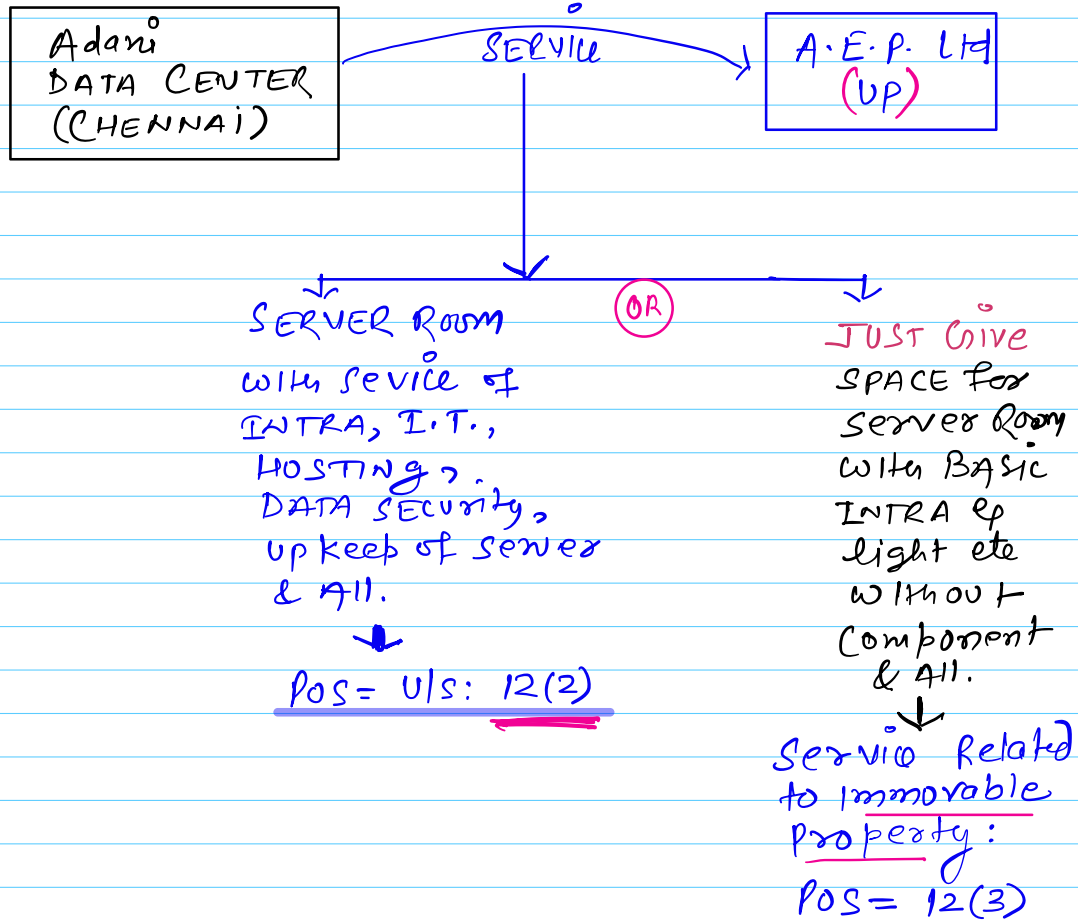 Adani
DATA CENTER
(CHENNAI)
SERVICE
A.E.P. Ltd
(UP)
OR
SERVER ROOM
with Sevice of
INTRA, I.T.,
HOSTING,
DATA SECURITY,
upkeep of server
& All.
POS = U/S: 12(2)
JUST Give
SPACE for
Server Room
with BASIC
INTRA ep
light etc
without
Component
& All.
Service Related
to Immovable
Property:
POS = 12(3)